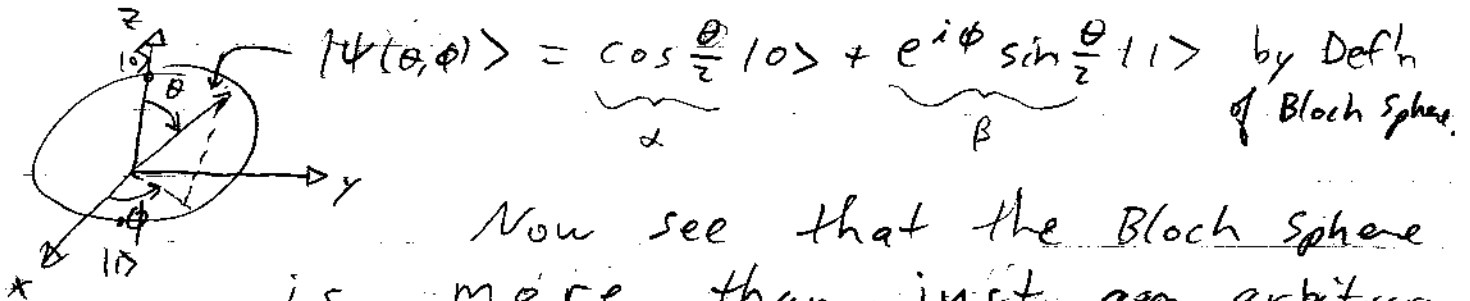 Z
|0>
θ
|ψ(θ,φ)> = cos θ/2 |0> + e^{iφ} sin θ/2 |1> by Def'n
α β of Bloch Sphere.
y
φ
Now see that the Bloch Sphere
x |1>
is more than just an arbitrary